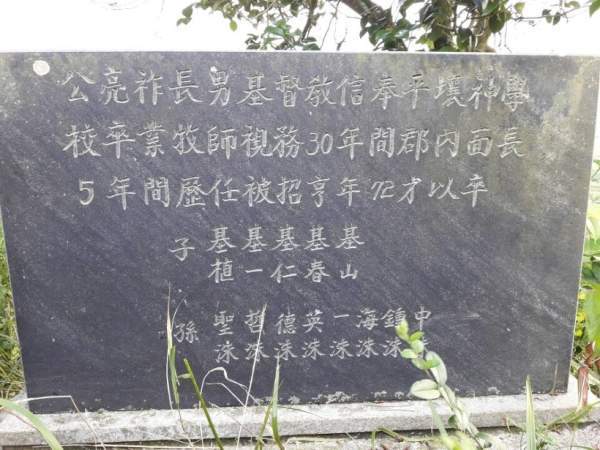 公亮祚長男基督敎信奉平壤神學
校卒業牧師視務30年間郡内面長
5年間歷任被招亨年72才以卒
子 基植 基一 基仁 基春 基山
孫 聖洙 哲洙 德洙 英洙 一洙 海洙 鍾洙 中